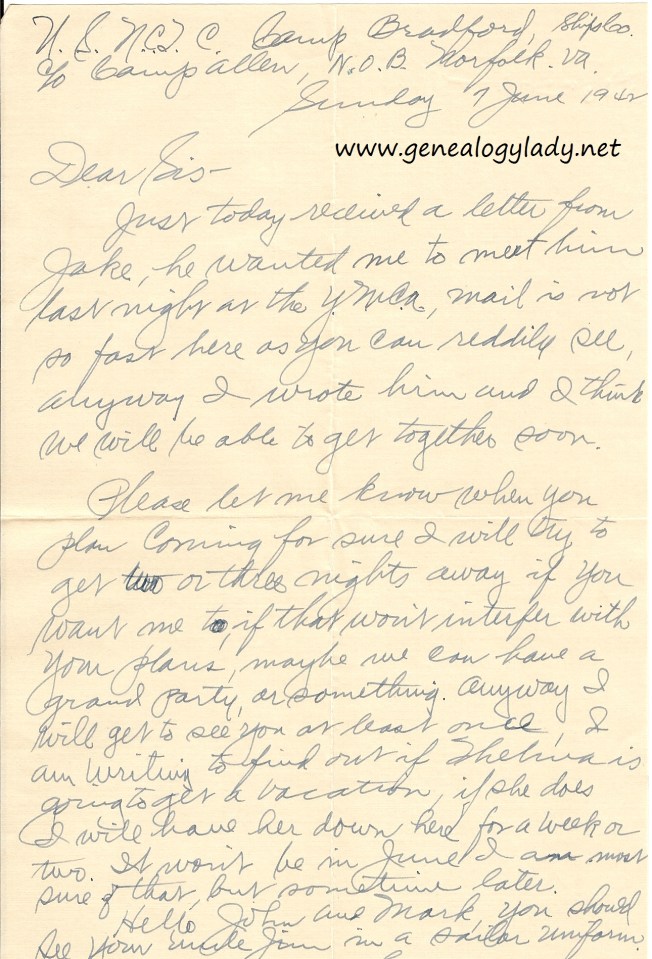 U.S. N.C.T.C. Camp Bradford, Ships Co.
c/o Camp Allen, N.O.B. Norfolk. Va.
Sunday 7 June 1942
www.genealogylady.net
Dear Sis-
Just today received a letter from
Jake, he wanted me to meet him
last night at the Y.M.C.A, mail is not
so fast here as you can reddily see,
anyway I wrote him and I think
we will be able to get together soon.
Please let me know when you
plan coming for sure I will try to
get two or three nights away if you
want me to, if that won't interfer with
your plans, maybe we can have a
grand party, or something. Anyway I
will get to see you at least once, I
am writing to find out if Thelma is
going to get a vacation, if she does
I will have her down here for a week or
two. It won't be in June I am most
sure of that, but sometime later.
Hello John and Mark, you should
see your uncle Jim in a sailor uniform.